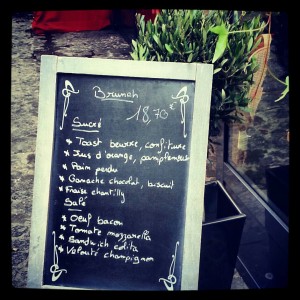 Brunch
18,70€
Sucré
* Toast beurre, confiture
* Jus d'orange, pamplemousse
* Pain perdu
* Ganache chocolat, biscuit
* Fraise chantilly
Salé
* Oeuf bacon
* Tomate mozzarella
* Sandwich
* Velouté champignon